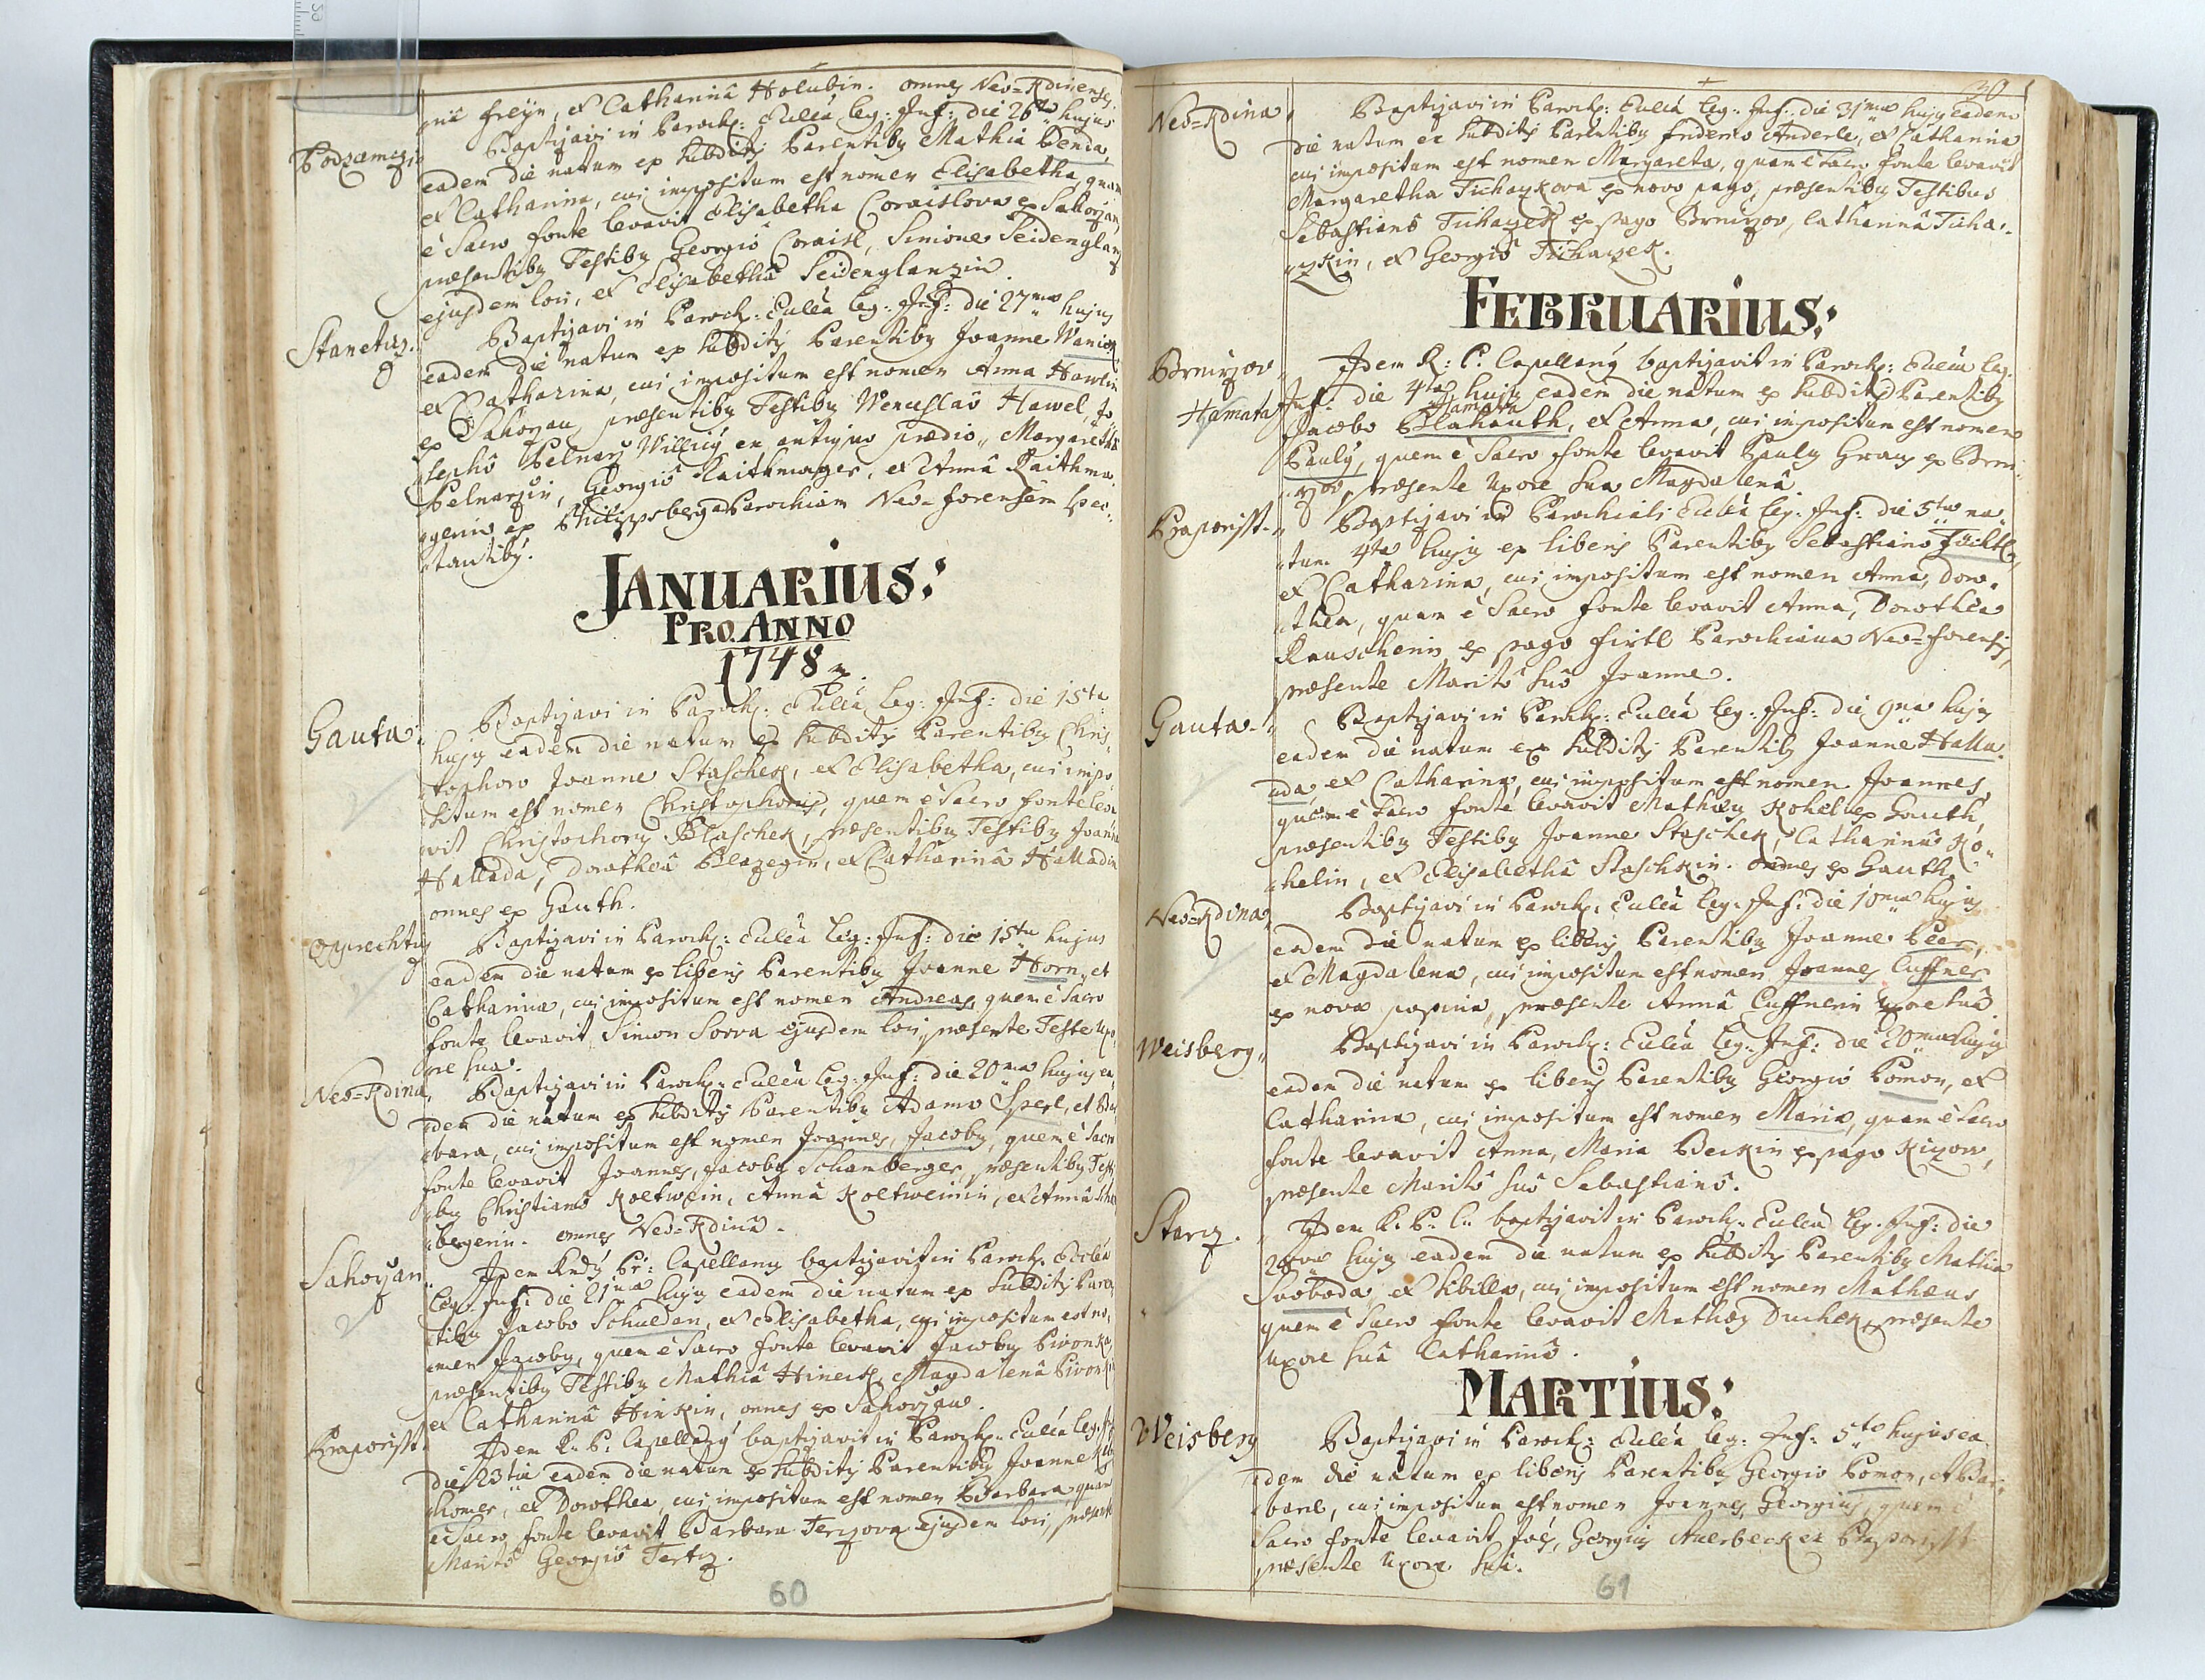 gniê Freÿn, et Catharinâ Holubin. omnes Neo-Rdinenses.
Podzamczi
Baptizavi in Paroch: Ecclêa Leg: Inf: die 26ta hujus
eadem die natum ex subditis Parentibus Mathia Benda,
et Catharina, cui impositum est nomen Elisabetha quam
è Sacro fonte levavit Elisabetha Coraislova ex Sahorzan,
præsentibus Testibus Georgiô Coraisl, Simone Seidenglanz
ejusdem loci, et Elisabethâ Seidenglanzin.
Stanetiz.
Baptizavi in Paroch: Ecclêa Leg: Inf: die 27ma hujus
eadem die natum ex subditis Parentibus Joanne Waniek
et Catharina, cui impositum est nomen Anna Hawlin
ex Sahorzan, præsentibus Testibus Wenceslaô Hawel, Jo
sephô Pelnarz Willicus ex antiquo prædio, Margarethâ
Pelnarzin, Georgiô Raithmager, et Annâ Raithma„
„gerin ex Philippsberg ad Parochiam Neo-forensem spec„
„tantibus.
JANUARIUS:
PRO ANNO
1748
Gauta.
Baptizavi in Paroch: Ecclêa Leg: Inf: die 15ta
hujus eadem die natum ex subditis Parentibus Chris„
„tophoro Joanne Staschek, et Elisabetha, cui impo„
„situm est nomen Christophorus, quem è Sacro fonte leva„
„vit Christophorus Blaschek, præsentibus Testibus Joanne
Hallada, Dorotheâ Blazegin, et Catharinâ Halladin
omnes ex Gauth.
Opprechtiz
Baptizavi in Paroch: Ecclêa Leg: Inf: die 15ta hujus
eadem die natum ex liberis Parentibus Joanne Horn, et
Catharina, cui impositum est nomen Andreas, quem è Sacro
fonte levavit Simon Sorva ejusdem loci, præsente Teste Uxo„
„re sua.
Neo-Rdina,
Baptizavi in Paroch: Ecclêa Leg: Inf: die 20ma hujus ea„
„dem die natum ex subditis Parentibus Adamo Sperl, et Bar
„bara, cui impositum est nomen Joannes, Jacobus, quem è Sacro
fonte levavit Joannes, Jacobus Schamberger, præsentibus Testi„
„bus Christianô Koltwein, Annâ Koltweinin, et Annâ Scham
„bergerin. omnes Neo-Rdinâ.
Sahorzan.
Idem Rndus Pr: Capellanus baptizavit in Paroch: Ecclêa
Leg: Inf: die 21ma hujus eadem die natum ex subditis Paren„
„tibus Jacobo Schuldan, et Elisabetha, cui impositum est no„
„men Jacobus, quem è Sacro fonte levavit Jacobus Pivonka,
præsentibus Testibus Mathiâ Hinek, Magdalenâ Pivonkin
et Catharinâ Hinkin, omnes ex Sahorzan.
Praporisst.
Idem R: P: Capellanus baptizavit in Paroch: Ecclêa Leg: Inf:
die 23tia eadem die natum ex subditis Parentibus Joanne
„homer, et Dorothea, cui impositum est nomen Barbara quam
è Sacro fonte levavit Barbara Terzova ejusdem loci, præsente
Maritô Georgiô Tertz.
60
30
Neo-Rdina,
Baptizavi in Paroch: Ecclêa Leg: Inf: die 31ma hujus eadem
die natum ex subditis Parentibus Friderico Anderle, et Catharina
cui impositum est nomen Margareta, quam è Sacro fonte levavit
Margaretha Tichazkova ex novo pago, præsentibus Testibus
Sebastianô Tichazek ex pago Brnirzov, Catharinâ Ticha„
„zkin, et Georgiô Tichazek.
FEBRUARIUS:
Brnirzov
Idem R: P: Capellanus baptizavit in Paroch: Ecclêa Leg:
Hamata
Inf: die 4ta hujus eadem die natum ex subditis Parentibus
Hamata
Jacobo Blahauth, et Anna, cui impositum est nomen
Paulus, quem è Sacro fonte levavit Paulus Graus ex Brni„
„rzov, præsente Uxore sua Magdalenâ.
Praporisst.
Baptizavi in Parochiali Ecclêa Leg: Inf: die 5ta na„
„tum 4ta hujus ex liberis Parentibus Sebastiano Jächtl,
et Catharina, cui impositum est nomen Anna, Doro„
„thea, quam è Sacro fonte levavit Anna, Dorothea
Rauscherin ex pago Firtl Parochiana Neo-forensis,
præsente Maritô suô Joanne.
Gauta.
Baptizavi in Paroch: Ecclêa Leg: Inf: die 9na hujus
eadem die natum ex subditis Parentibus Joanne Halla„
„da et Catharina, cui impositum est nomen Joannes,
quem è Sacro fonte levavit Mathæus Kohel ex Gauth,
præsentibus Testibus Joanne Staschek, Catharinâ Ko„
„helin, et Elisabethâ Staschkin. omnes ex Gauth.
Neo-Rdina,
Baptizavi in Paroch: Ecclêa Leg: Inf: die 10ma hujus
eadem die natum ex liberis Parentibus Joanne Peer,
et Magdalena, cui impositum est nomen Joannes Cuffner
ex nova papina, præsente Annâ Cuffnerin Uxore suâ.
Weisberg„
Baptizavi in Paroch: Ecclêa Leg: Inf: die 20ma hujus
eadem die natum ex liberis Parentibus Georgio Pomon, et
Catharina, cui impositum est nomen Maria, quam è Sacro
fonte levavit Anna, Maria Beckin ex pago Kizow,
præsente Maritô suô Sebastianô.
Starz.
Idem R: P: C: baptizavit in Paroch: Ecclêa Leg: Inf: die
hujus eadem die natum ex subditis Parentibus Mathia
Svoboda, et Sibilla, cui impositum est nomen Mathæus
quem è Sacro fonte levavit Mathæus Duchek, præsente
Uxore suâ Catharinâ.
MARTIUS:
Weisberg
Baptizavi in Paroch: Ecclêa Leg: Inf: 5ta hujus ea„
„dem die natum ex liberis Parentibus Georgio Pomon, et Bar„
„bara, cui impositum est nomen Joannes, Georgius, quem è
Sacro fonte levavit Joes, Georgius Auerbeck ex Praporisst
præsente Uxore suâ.
61